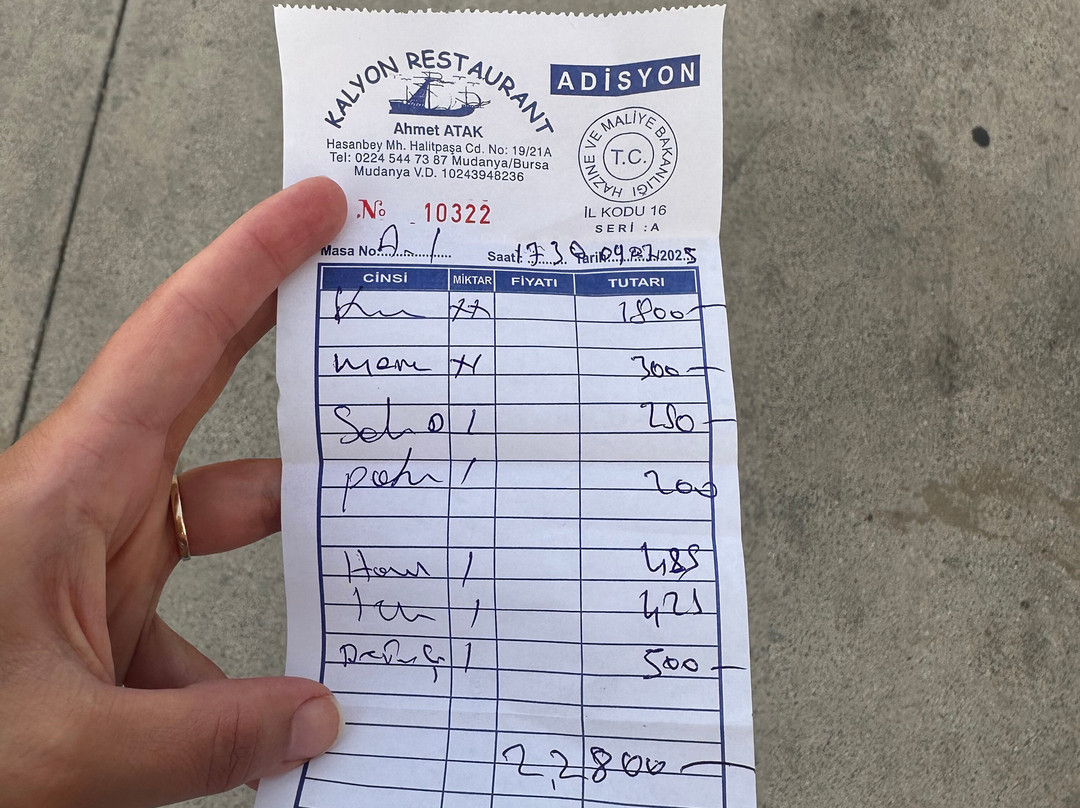 KALYON RESTAURANT
Ahmet ATAK
Hasanbey Mh. Halitpaşa Cd. No: 19/21A
Tel: 0224 544 73 87 Mudanya/Bursa
Mudanya V.D. 10243948236
ADİSYON
HAZİNE VE MALİYE BAKANLIĞI
T.C.
İL KODU 16
SERİ :A
№ 10322
Masa No: A-1 Saat: 17.30 Tarih: /2025
CİNSİ MİKTAR FİYATI TUTARI
1800
300
1 250
1 200
1 485
1 425
1 500
2,2800